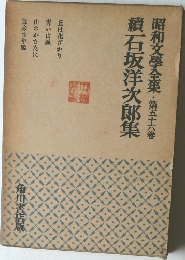 昭和文學全集・第五十六卷
續石坂洋次郎集
丘は花ざかり
青い山脈
山のかなたに
角川書店版